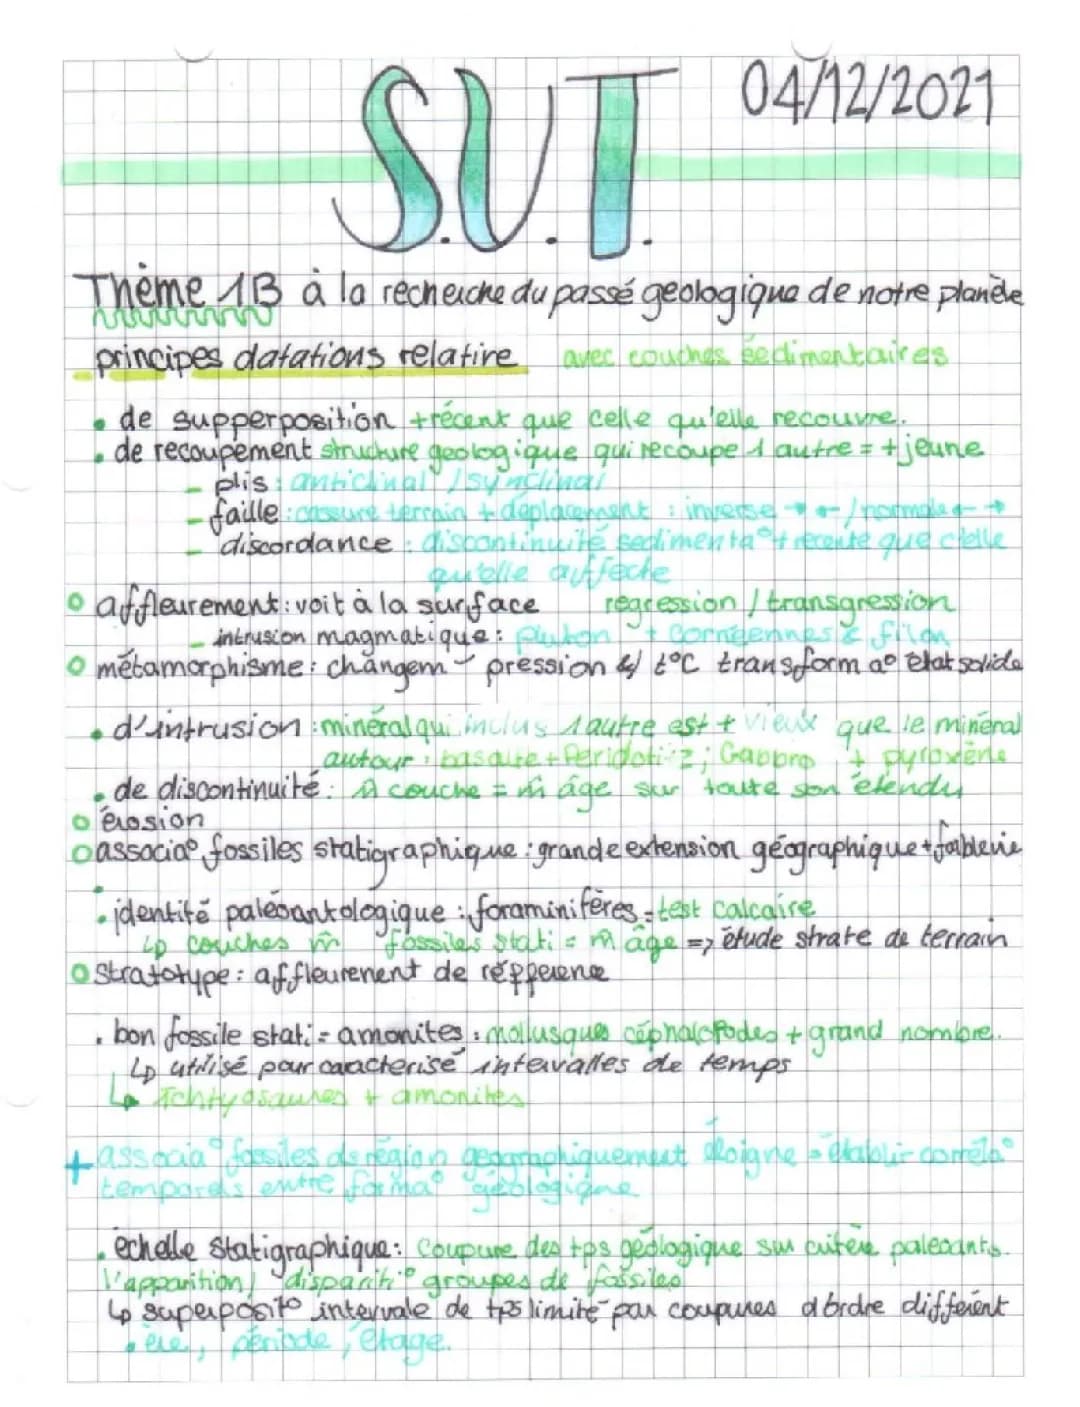 S.U.T. 04/12/2021
Thème 1B à la recherche du passé geologique de notre planète
principes datations relative avec couches sedimentaires
• de supperposition + récent que celle qu'elle recouvre.
• de recoupement structure geologique qui recoupe 1 autre = + jeune
- plis : anticlinal / synclinal
- faille : cassure terrain + déplacement : inverse → ← / normale ← →
- discordance : discontinuité sedimenta° + recente que c'elle
qu'elle affecte
o affleurement : voit à la surface regression / transgression
- intrusion magmatique : pluton + cornéennes & filon
o métamorphisme : changem pression & t°C transforma° état solide
• d'intrusion : minéral qui inclus 1 autre est + vieux que le minéral
autour : basalte + Peridoti ; Gabbro + pyroxène
• de discontinuité : m̂ couche = m̂ âge sur toute son étendu
o érosion
o associa° fossiles statigraphique : grande extension géographique + faible vie
• identité paléoantologique : foraminifères = test calcaire
↳ couches m̂ fossiles stati = m̂ âge => étude strate de terrain
o Stratotype : affleurenent de réfference
• bon fossile stati = amonites : mollusques céphalopodes + grand nombre.
↳ utilisé pour caracterisé intervalles de temps
↳ Ichtyosaures + amonites
+ associa° fossiles ds région geographiquement éloigne = établir corréla°
temporels entre forma° géologique
• échelle Statigraphique : Coupure des tps géologique sur critère paleoanto.
l'apparition / dispariti° groupes de fossiles
↳ superposit° intervale de tps limité par coupures d'ordre différent
• ère, période, étage.